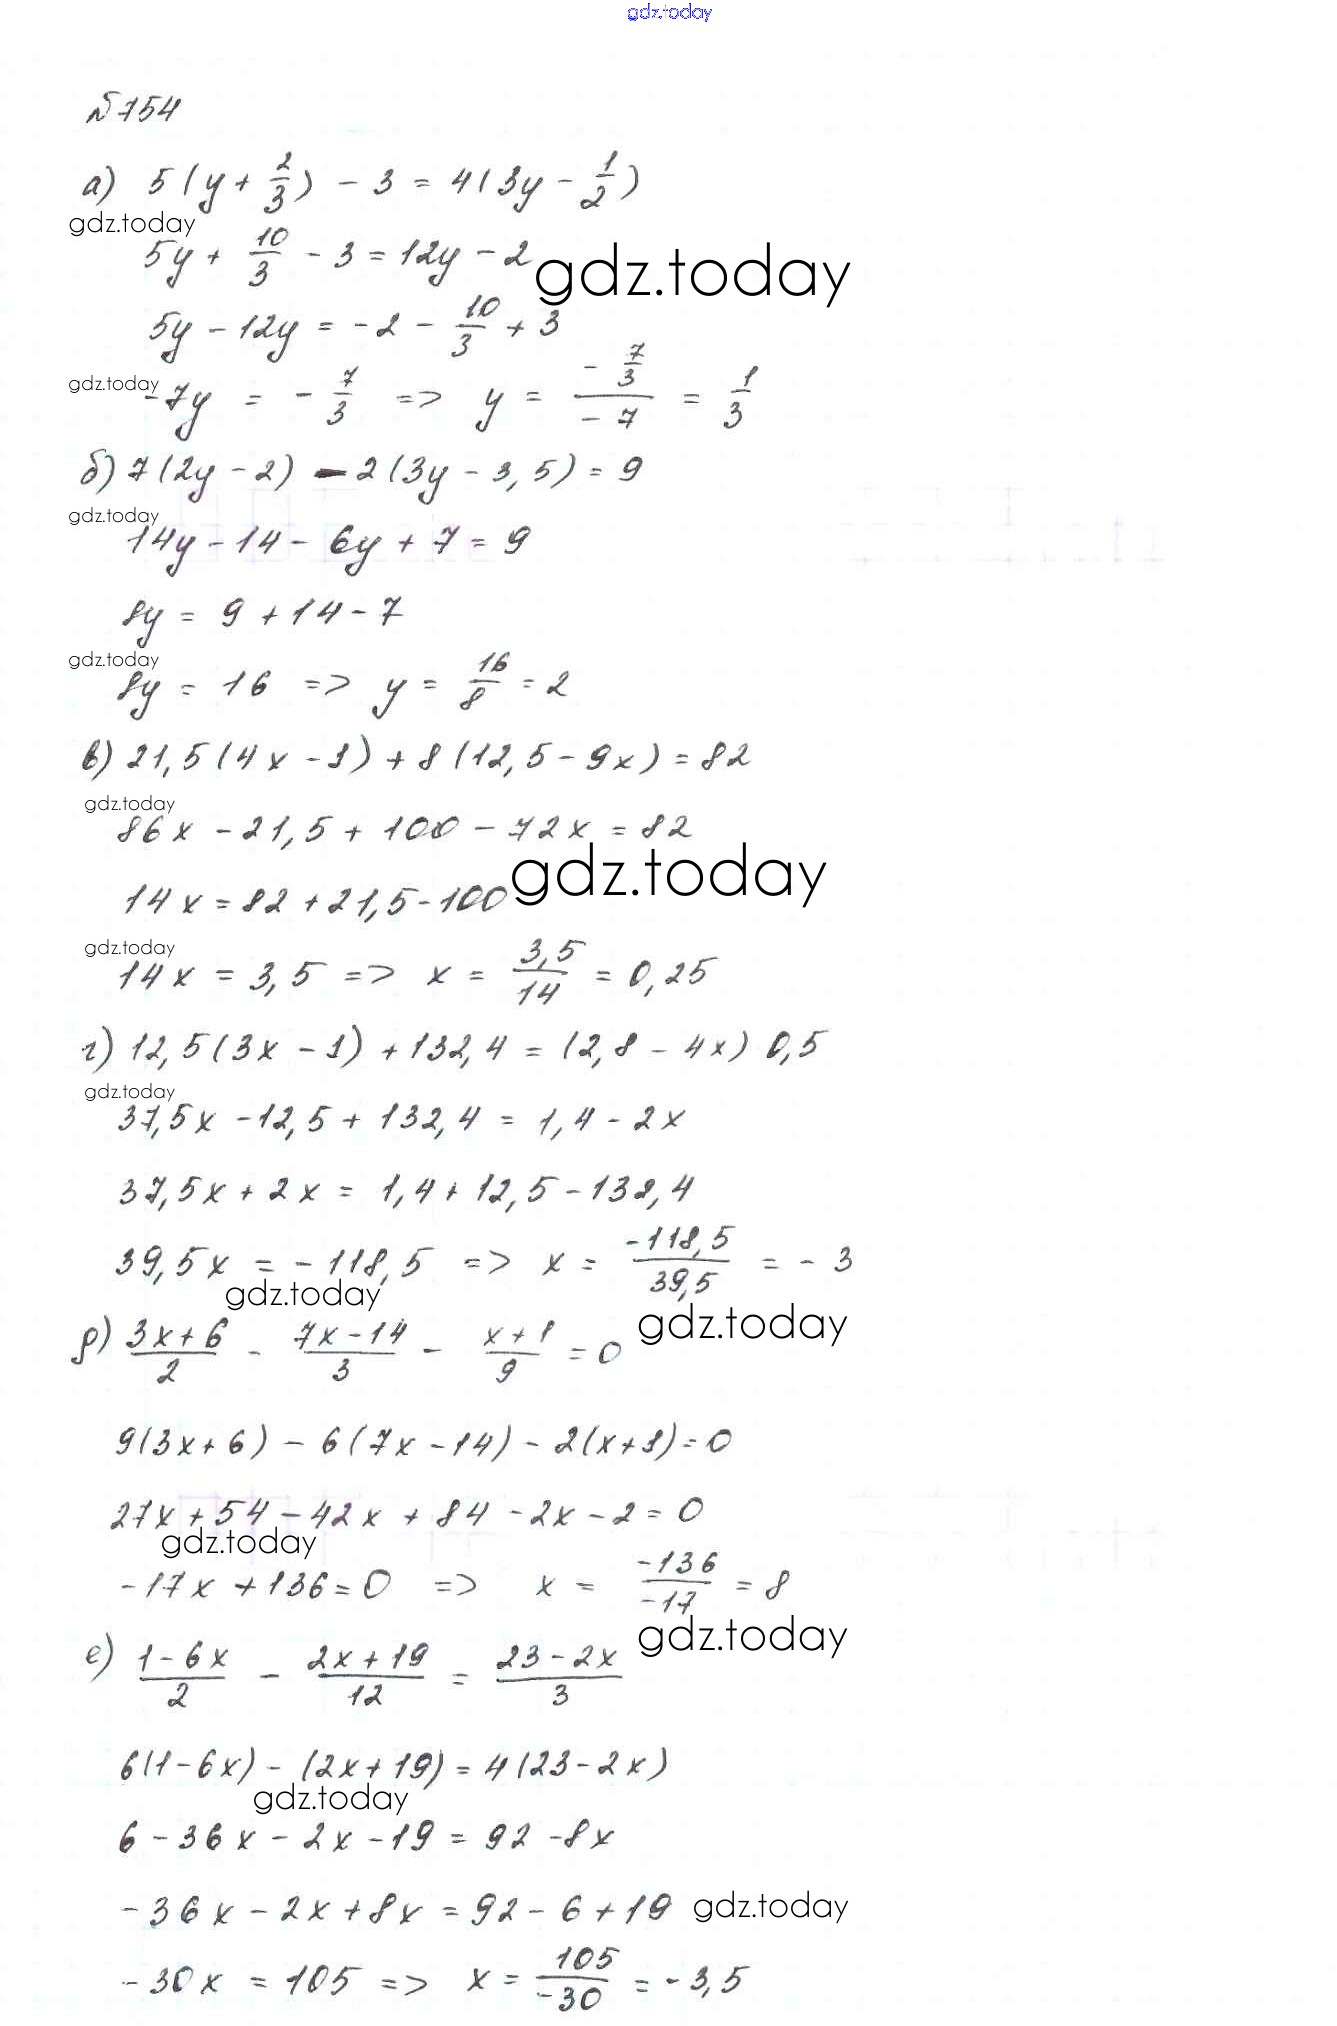 gdz.today
№754
а) 5(y + 2/3) - 3 = 4(3y - 1/2)
gdz.today
5y + 10/3 - 3 = 12y - 2
gdz.today
5y - 12y = -2 - 10/3 + 3
gdz.today
-7y = - 7/3 => y = (- 7/3)/(-7) = 1/3
б) 7(2y - 2) - 2(3y - 3,5) = 9
gdz.today
14y - 14 - 6y + 7 = 9
8y = 9 + 14 - 7
gdz.today
8y = 16 => y = 16/8 = 2
в) 21,5(4x - 1) + 8(12,5 - 9x) = 82
gdz.today
86x - 21,5 + 100 - 72x = 82
gdz.today
14x = 82 + 21,5 - 100
gdz.today
14x = 3,5 => x = 3,5/14 = 0,25
г) 12,5(3x - 1) + 132,4 = (2,8 - 4x) 0,5
gdz.today
37,5x - 12,5 + 132,4 = 1,4 - 2x
37,5x + 2x = 1,4 + 12,5 - 132,4
39,5x = - 118,5 => x = -118,5/39,5 = - 3
gdz.today
gdz.today
д) (3x + 6)/2 - (7x - 14)/3 - (x + 1)/9 = 0
9(3x + 6) - 6(7x - 14) - 2(x + 1) = 0
27x + 54 - 42x + 84 - 2x - 2 = 0
gdz.today
-17x + 136 = 0 => x = -136/-17 = 8
gdz.today
е) (1 - 6x)/2 - (2x + 19)/12 = (23 - 2x)/3
6(1 - 6x) - (2x + 19) = 4(23 - 2x)
gdz.today
6 - 36x - 2x - 19 = 92 - 8x
-36x - 2x + 8x = 92 - 6 + 19
gdz.today
-30x = 105 => x = 105/-30 = -3,5